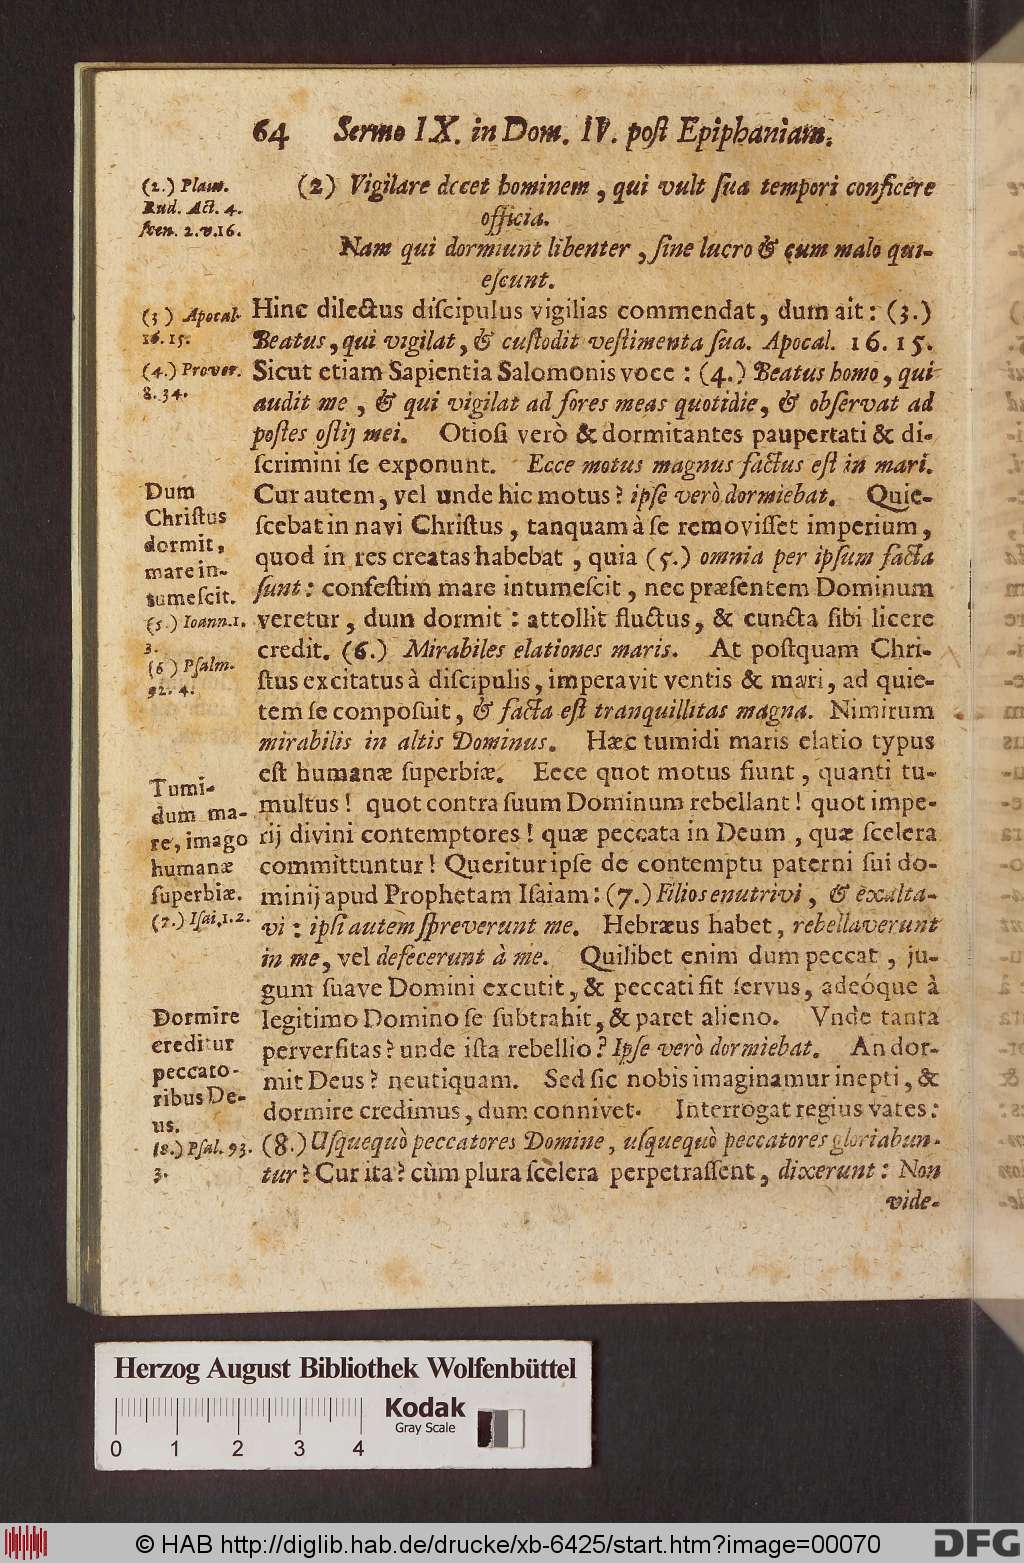 64 Sermo IX. in Dom. IV. poſt Epiphaniam.
(2.) Plaut.
Rud. Act. 4.
ſcen. 2.v.16.
(2) Vigilare decet hominem, qui vult ſua tempori conficere
officia.
Nam qui dormiunt libenter, ſine lucro & cum malo qui-
eſcunt.
(3) Apocal.
16.15.
(4.) Prover.
8.34.
Hinc dilectus diſcipulus vigilias commendat, dum ait: (3.)
Beatus, qui vigilat, & cuſtodit veſtimenta ſua. Apocal. 16. 15.
Sicut etiam Sapientia Salomonis voce: (4.) Beatus homo, qui
audit me, & qui vigilat ad fores meas quotidie, & obſervat ad
poſtes oſtij mei. Otioſi verò & dormitantes paupertati & di-
ſcrimini ſe exponunt. Ecce motus magnus factus eſt in mari.
Dum
Chriſtus
dormit,
mare in-
tumeſcit.
(5.) Ioann.1.
3.
(6) Pſalm.
92. 4.
Cur autem, vel unde hic motus? ipſe verò dormiebat. Quie-
ſcebat in navi Chriſtus, tanquam à ſe removiſſet imperium,
quod in res creatas habebat, quia (5.) omnia per ipſum facta
ſunt: confeſtim mare intumeſcit, nec præſentem Dominum
veretur, dum dormit: attollit fluctus, & cuncta ſibi licere
credit. (6.) Mirabiles elationes maris. At poſtquam Chri-
ſtus excitatus à diſcipulis, imperavit ventis & mari, ad quie-
tem ſe compoſuit, & facta eſt tranquillitas magna. Nimirum
mirabilis in altis Dominus. Hæc tumidi maris elatio typus
eſt humanæ ſuperbiæ. Ecce quot motus fiunt, quanti tu-
Tumi-
dum ma-
re, imago
humanæ
ſuperbiæ.
(7.) Iſai.1.2.
multus! quot contra ſuum Dominum rebellant! quot impe-
rij divini contemptores! quæ peccata in Deum, quæ ſcelera
committuntur! Queritur ipſe de contemptu paterni ſui do-
minij apud Prophetam Iſaiam: (7.) Filios enutrivi, & exalta-
vi: ipſi autem ſpreverunt me. Hebræus habet, rebellaverunt
in me, vel defecerunt à me. Quilibet enim dum peccat, ju-
gum ſuave Domini excutit, & peccati fit ſervus, adeóque à
Dormire
creditur
peccato-
ribus De-
us.
(8.) Pſal. 93.
3.
legitimo Domino ſe ſubtrahit, & paret alieno. Vnde tanta
perverſitas? unde iſta rebellio? Ipſe verò dormiebat. An dor-
mit Deus? neutiquam. Sed ſic nobis imaginamur inepti, &
dormire credimus, dum connivet. Interrogat regius vates:
(8.) Uſquequò peccatores Domine, uſquequò peccatores gloriabun-
tur? Cur ita? cùm plura ſcelera perpetraſſent, dixerunt: Non
vide-
Herzog August Bibliothek Wolfenbüttel
Kodak
Gray Scale
0 1 2 3 4
© HAB http://diglib.hab.de/drucke/xb-6425/start.htm?image=00070
DFG